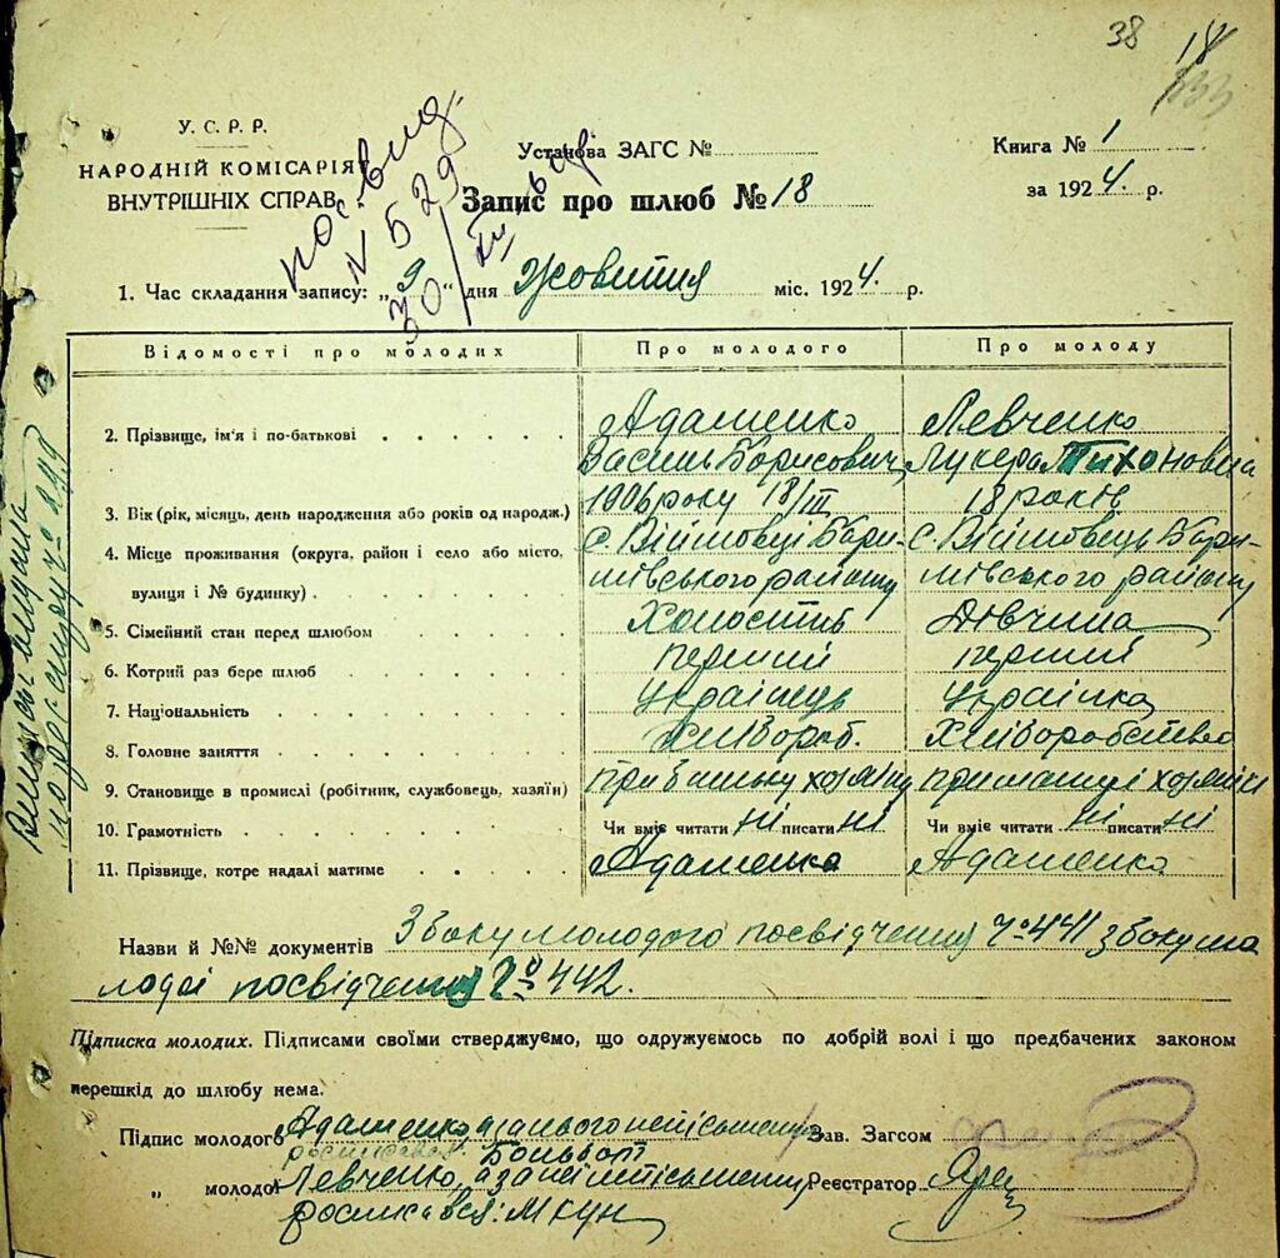 38
18
У. С. Р. Р.
НАРОДНІЙ КОМІСАРІЯТ
ВНУТРІШНІХ СПРАВ
Установа ЗАГС №
Книга № 1
за 1924. р.
Запис про шлюб № 18
посвид.
N 529
30/XII
1. Час складання запису: „9" дня Жовтня міс. 1924. р.
Відомості про молодих Про молодого Про молоду
2. Прізвище, ім'я і по-батькові Адаменко Левченко
Василь Борисович Лукера Тихоновна
3. Вік (рік, місяць, день народження або років од народж.) 1906 року 18/III 18 років
4. Місце проживання (округа, район і село або місто, с. Війтовці Бори- с. Війтовець Бори-
вулиця і № будинку) півського району півського району
5. Сімейний стан перед шлюбом Холостий Дівчина
6. Котрий раз бере шлюб перший перший
7. Національність Українець Українка
8. Головне заняття хлібороб. Хліборобство
9. Становище в промислі (робітник, службовець, хазяїн) при батьку
10. Грамотність Чи вміє читати ні писати ні Чи вміє читати ні писати ні
11. Прізвище, котре надалі матиме Адаменко Адаменко
Назви й №№ документів З боку молодого посвідчення Ч° 441 з боку мо
лодої посвідчення Ч° 442.
Підписка молодих. Підписами своїми стверджуємо, що одружуємось по добрій волі і що предбачених законом
перешкід до шлюбу нема.
Підпис молодого Адаменко, а за нього Зав. Загсом
росписався
„ молодої Левченко, а за неї Реєстратор
росписався: М Кун